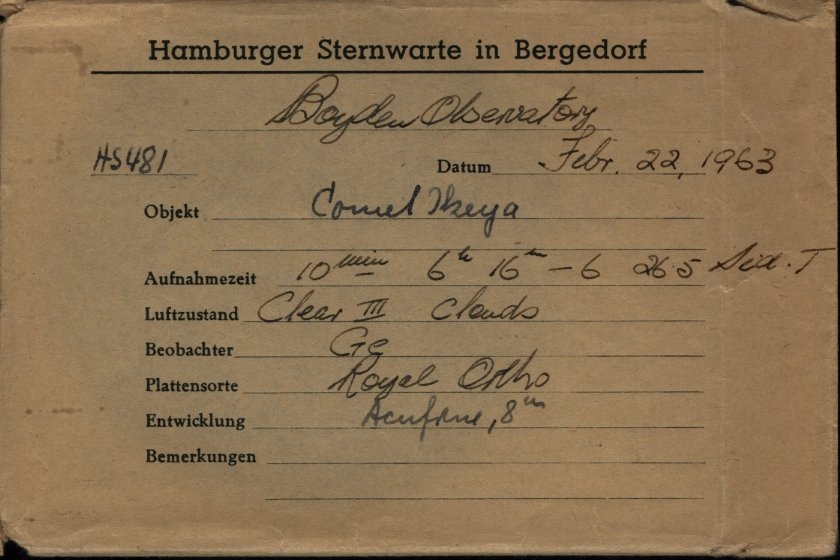 Hamburger Sternwarte in Bergedorf
Boyden Observatory
HS481 Datum Febr. 22, 1963
Objekt Comet Ikeya
Aufnahmezeit 10 min 6h 16m – 6 26.5 Sid. T
Luftzustand Clear III Clouds
Beobachter Ge
Plattensorte Royal Ortho
Entwicklung Acufine, 8m
Bemerkungen